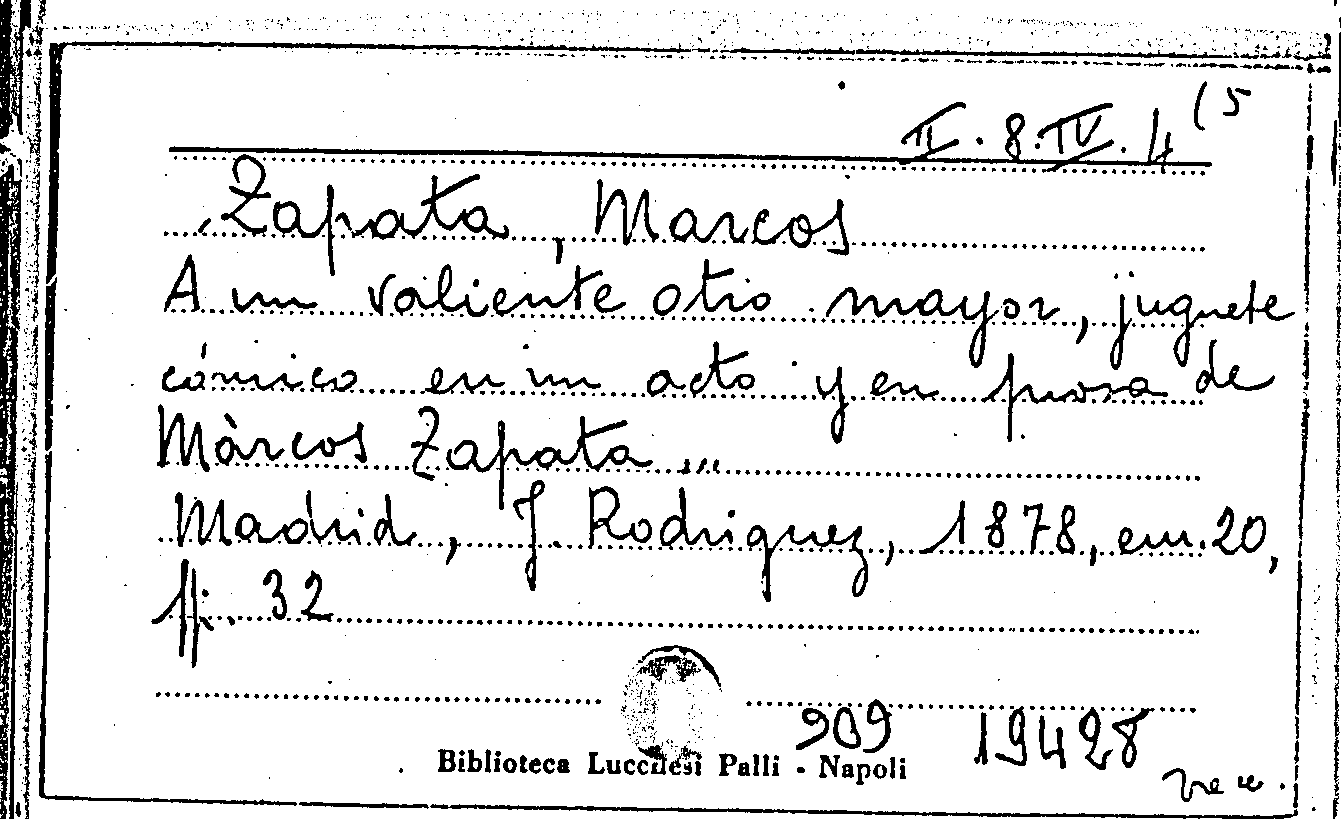 II.8.IV.4(5
Zapata, Marcos
A un valiente otro mayor, juguete
cómico en un acto y en prosa de
Màrcos Zapata ...
Madrid, J. Rodriguez, 1878, cm.20,
pp. 32
909 19428
Biblioteca Lucchesi Palli - Napoli